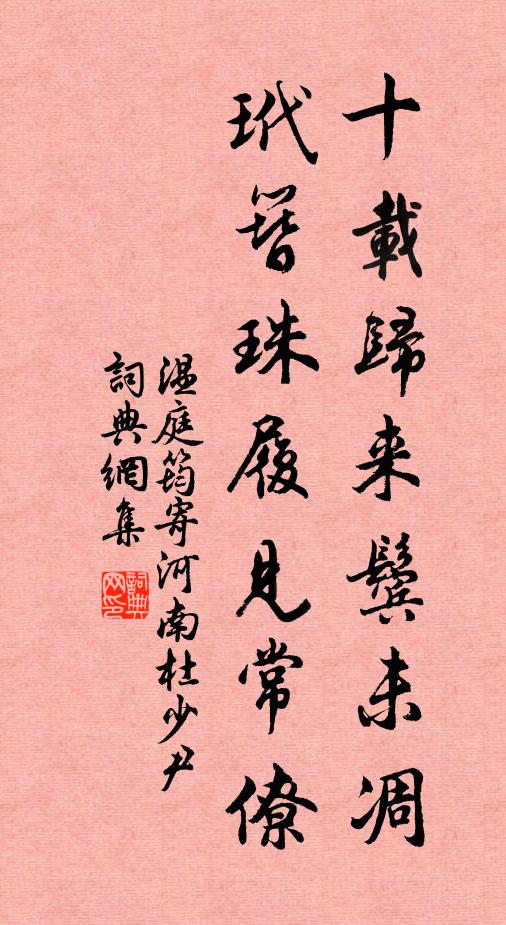 十載歸来鬢未凋
玳簪珠履見常僚
温庭筠寄河南杜少尹
詞典網集
詞典网印